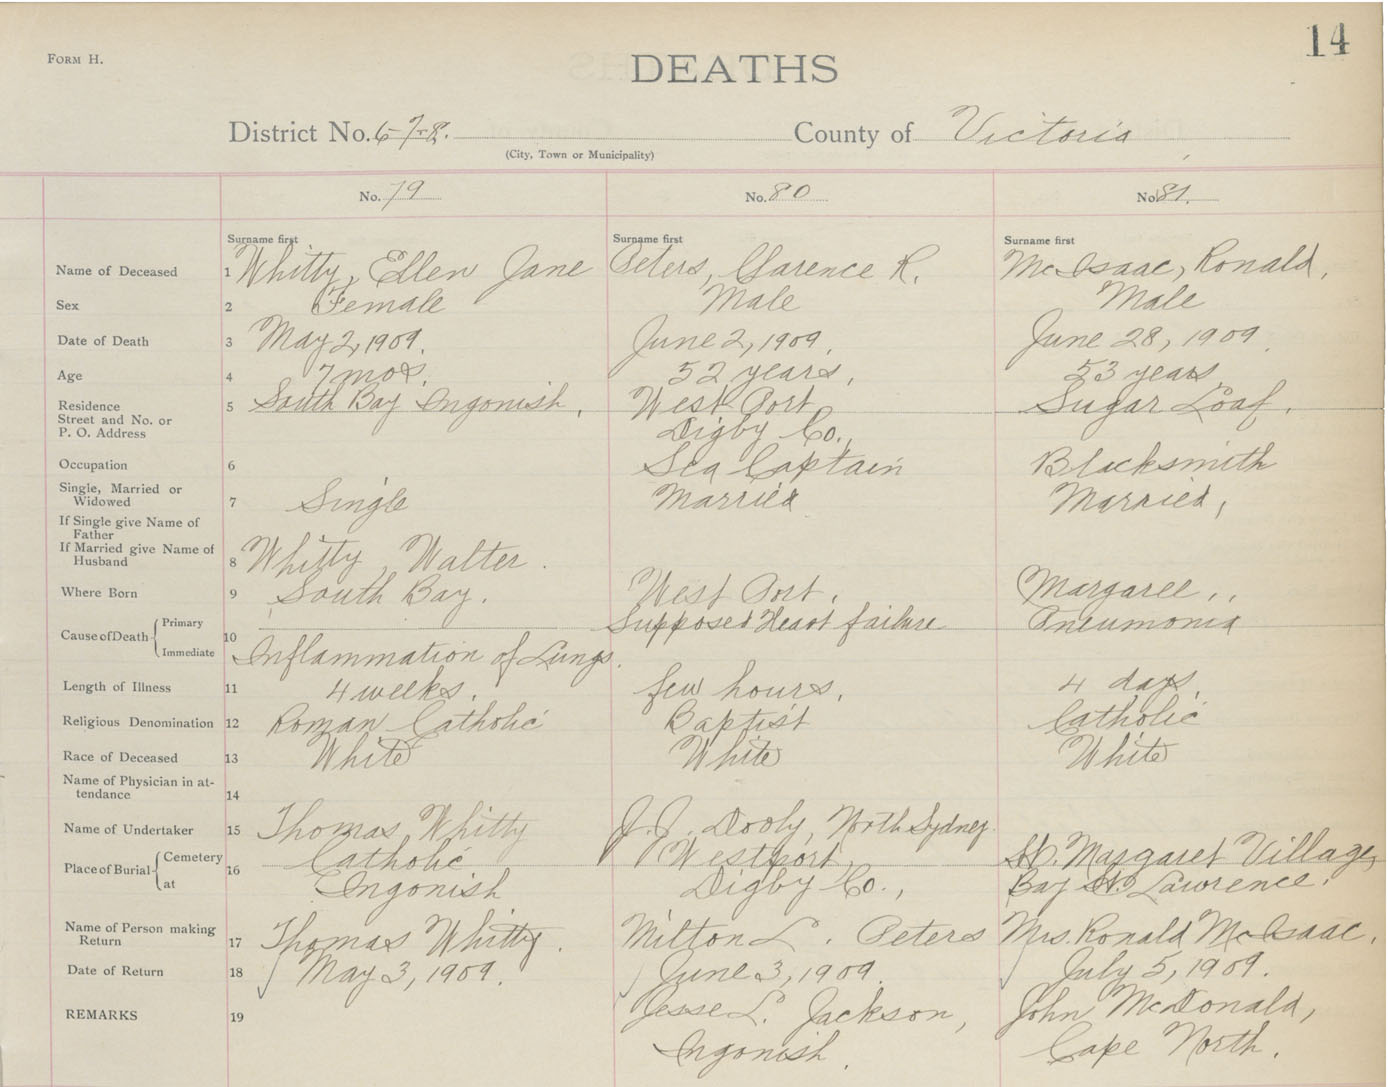 14
FORM H.
DEATHS
District No. 6-7-8. County of Victoria
(City, Town or Municipality)
No. 79 No. 80 No. 81.
Surname first Surname first Surname first
Name of Deceased 1 Whitty, Ellen Jane Peters, Clarence R. McIsaac, Ronald,
Sex 2 Female Male Male
Date of Death 3 May 2, 1909. June 2, 1909. June 28, 1909.
Age 4 7 mos. 52 years, 53 years
Residence
Street and No. or
P. O. Address 5 South Bay Ingonish, West Port Sugar Loaf.
Digby Co.,
Occupation 6 Sea Captain Blacksmith
Single, Married or
Widowed 7 Single Married Married,
If Single give Name of
Father
If Married give Name of
Husband 8 Whitty, Walter.
Where Born 9 South Bay. West Port. Margaree,,
Cause of Death Primary 10 Supposed Heart failure Pneumonia
Immediate Inflammation of Lungs.
Length of Illness 11 4 weeks. few hours. 4 days.
Religious Denomination 12 Roman Catholic Baptist Catholic
Race of Deceased 13 White White White
Name of Physician in at-
tendance 14
Name of Undertaker 15 Thomas Whitty J. J. Dooly, North Sydney.
Place of Burial Cemetery 16 Catholic Westport, St. Margaret Village,
at Ingonish Digby Co., Bay St. Lawrence.
Name of Person making
Return 17 Thomas Whitty. Milton L. Peters Mrs. Ronald McIsaac.
Date of Return 18 May 3, 1909. June 3, 1909. July 5, 1909.
REMARKS 19 Jesse L. Jackson, John McDonald,
Ingonish. Cape North.